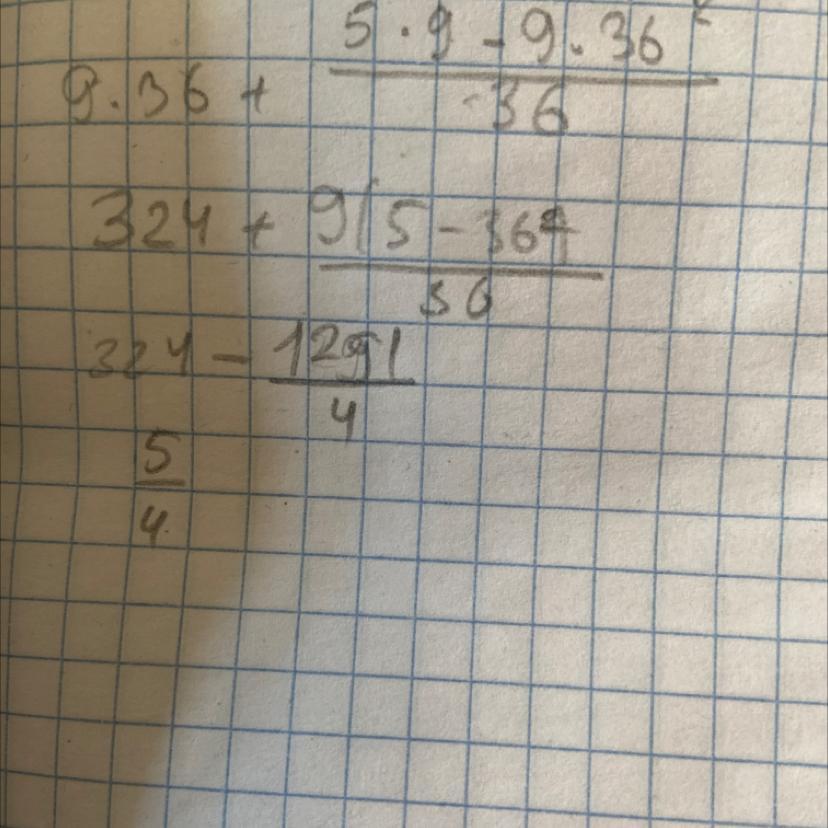 5 · 9 - 9 · 36²
9.36 + ———
36
324 + 9(5 - 36²)
36
324 - 1291
4
5
4